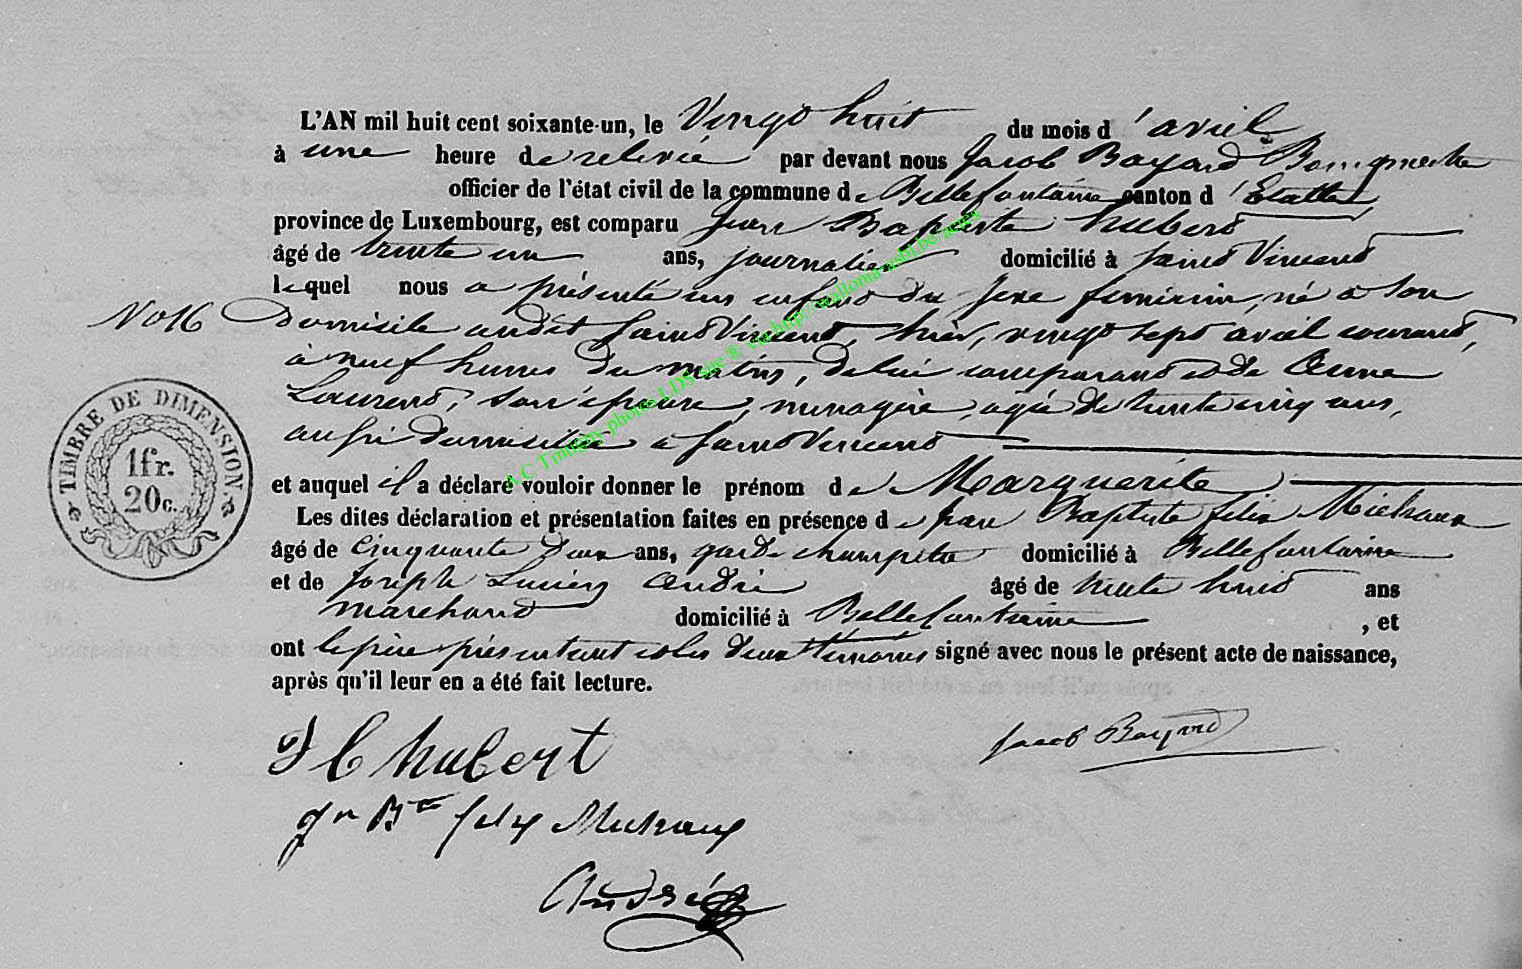 L'AN mil huit cent soixante-un, le Vingt huit du mois d'avril
à une heure de relevée par devant nous Jacob Bayard Bourgmestre
officier de l'état civil de la commune de Bellefontaine canton d'Etalle,
province de Luxembourg, est comparu Jean Baptiste hubert
âgé de trente un ans, journalier domicilié à Saint Vincent
lequel nous a présenté un enfant du sexe feminin, né a son
No 16 Domicile audit Saint Vincent, hier, vingt sept avril courant,
à neuf heures du matin, de lui comparant et de Anne
Laurent, son épouse, menagère, agée de trente cinq ans,
aussi domiciliée a Saint Vincent
et auquel il a déclaré vouloir donner le prénom de Marguerite
Les dites déclaration et présentation faites en présence de Jean Baptiste felix Michaux
âgé de cinquante deux ans, garde champetre domicilié à Bellefontaine
et de Joseph Lucien André âgé de trente huit ans
marchand domicilié à Bellefontaine , et
ont le père présentant et les deux témoins signé avec nous le présent acte de naissance,
après qu'il leur en a été fait lecture.
TIMBRE DE DIMENSION
1fr.
20c.
A C Tintigny photos LDS site ® via http://wallonia-asbl.be/actes
J B hubert
Jacob Bayard
Jn Bte felix Michaux
André